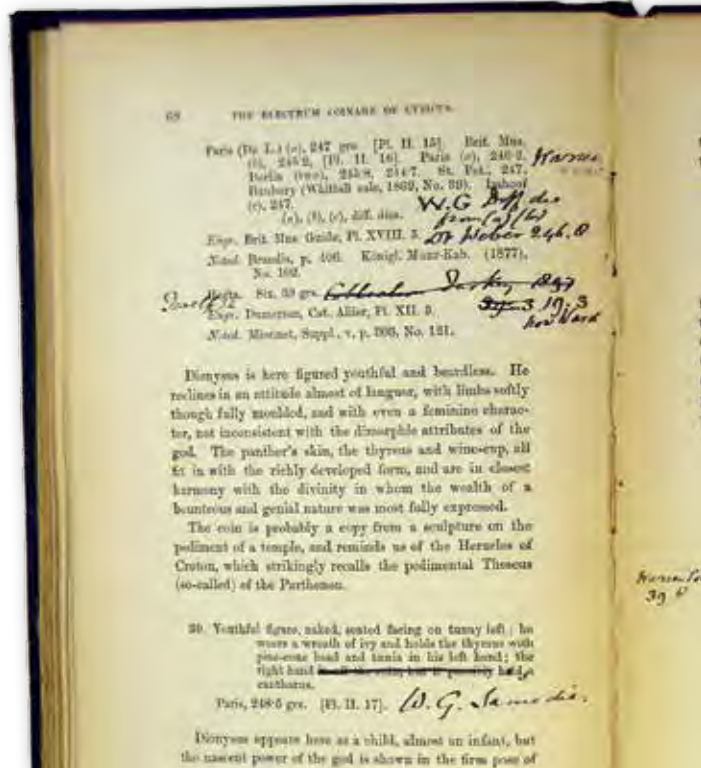 68 THE ELECTRUM COINAGE OF CYZICUS.
Paris (De L.) (a), 247 grs. [Pl. II. 15]. Brit. Mus.
(b), 245·2, [Pl. II. 16]. Paris (a), 246·2. Warren
Berlin (two), 245·8, 244·7. St. Pet., 247.
Bunbury (Whittall sale, 1869, No. 39). Imhoof
(c), 247. W.G Diff die
(a), (b), (c), diff. dies. from (a) (b)
Engr. Brit. Mus. Guide, Pl. XVIII. 3. Dr Weber 246.8
Noted. Brandis, p. 406. Königl. Munz-Kab. (1877),
No. 102.
Hecta. Six, 39 grs.
Engr. Dumersan, Cat. Allier, Pl. XII. 5. 19.3
Noted. Mionnet, Suppl., v. p. 303, No. 121. now Ward
Dionysus is here figured youthful and beardless. He
reclines in an attitude almost of languor, with limbs softly
though fully moulded, and with even a feminine charac-
ter, not inconsistent with the dimorphic attributes of the
god. The panther's skin, the thyrsus and wine-cup, all
fit in with the richly developed form, and are in closest
harmony with the divinity in whom the wealth of a
bounteous and genial nature was most fully expressed.
The coin is probably a copy from a sculpture on the
pediment of a temple, and reminds us of the Heracles of
Croton, which strikingly recalls the pedimental Theseus
(so-called) of the Parthenon.
39
30. Youthful figure, naked, seated facing on tunny left; he
wears a wreath of ivy and holds the thyrsus with
pine-cone head and tænia in his left hand; the
right hand holds a
cantharus.
Paris, 248·5 grs. [Pl. II. 17]. W. G. Same die.
Dionysus appears here as a child, almost an infant, but
the nascent power of the god is shown in the firm pose of